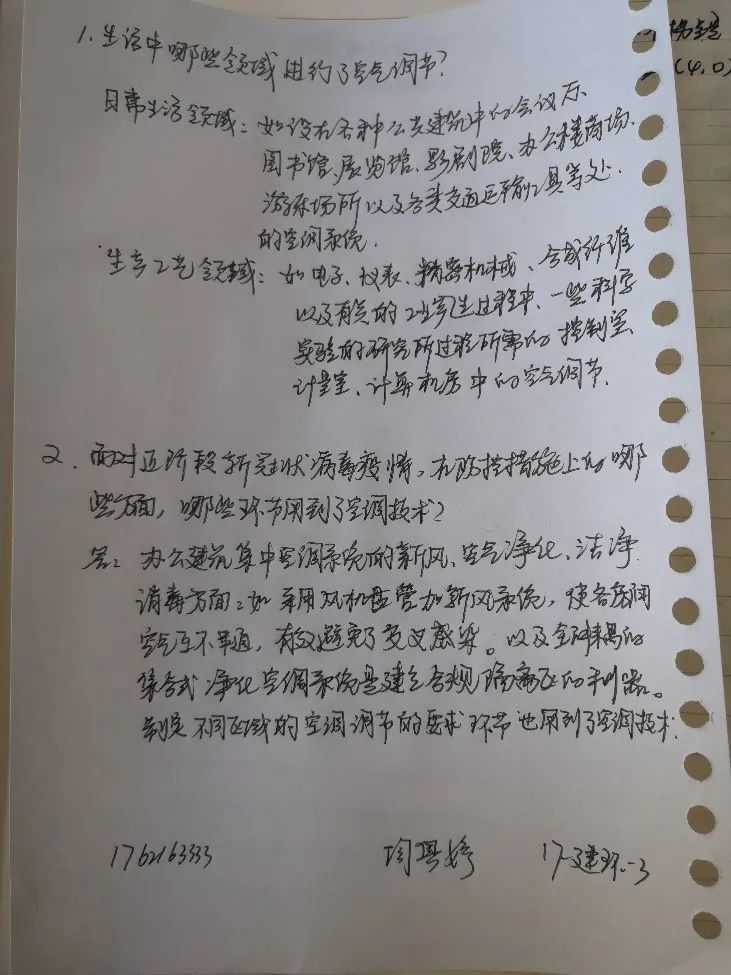 1.生活中哪些领域进行了空气调节?
日常生活领域:如设在各种公共建筑中的会议厅、
图书馆、展览馆、影剧院、办公楼商场、
游乐场所以及各类交通运输工具等处
的空调系统.
生产工艺领域:如电子、仪表、精密机械、合成纤维
以及有关的工业生过程中、一些科学
实验的研究所过程所需的控制室、
计量室、计算机房中的空气调节.
2.面对近阶段新冠状病毒疫情,在防控措施上的哪
些方面,哪些环节用到了空调技术?
答:办公建筑集中空调系统的新风、空气净化、洁净
消毒方面:如采用风机盘管加新风系统,使各房间
空气互不串通,有效避免了交叉感染。以及
集合式净化空调系统是建立合规隔离区的利器。
制定不同区域的空调调节的要求环节也用到了空调技术.
1762163333
17建环-3
(4,0)